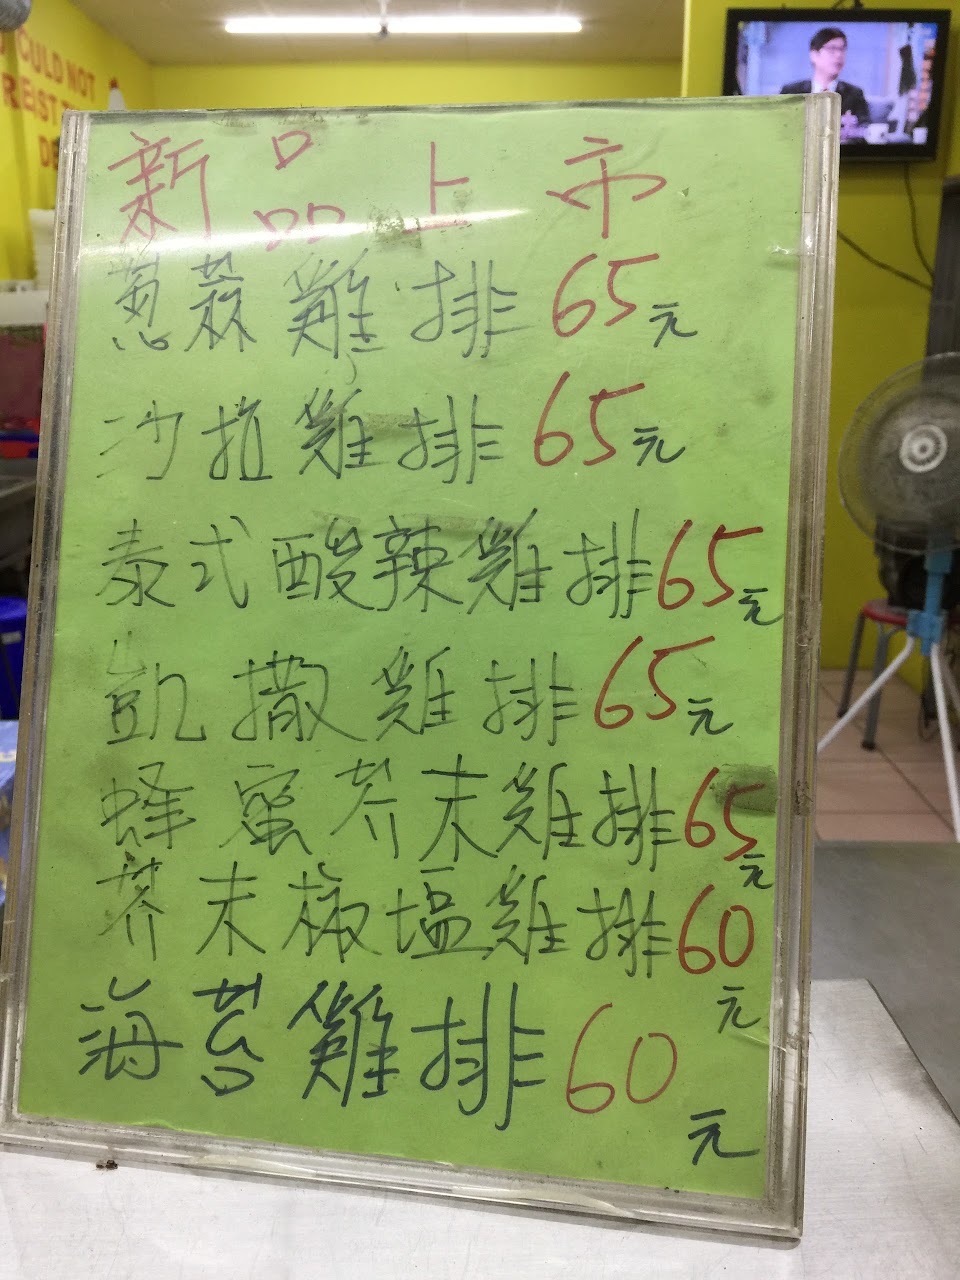 OULD NOT
新品上市
蔥蒜雞排65元
沙拉雞排65元
泰式酸辣雞排65元
凱撒雞排65元
蜂蜜芥末雞排65元
芥末椒塩雞排60元
海苔雞排60元